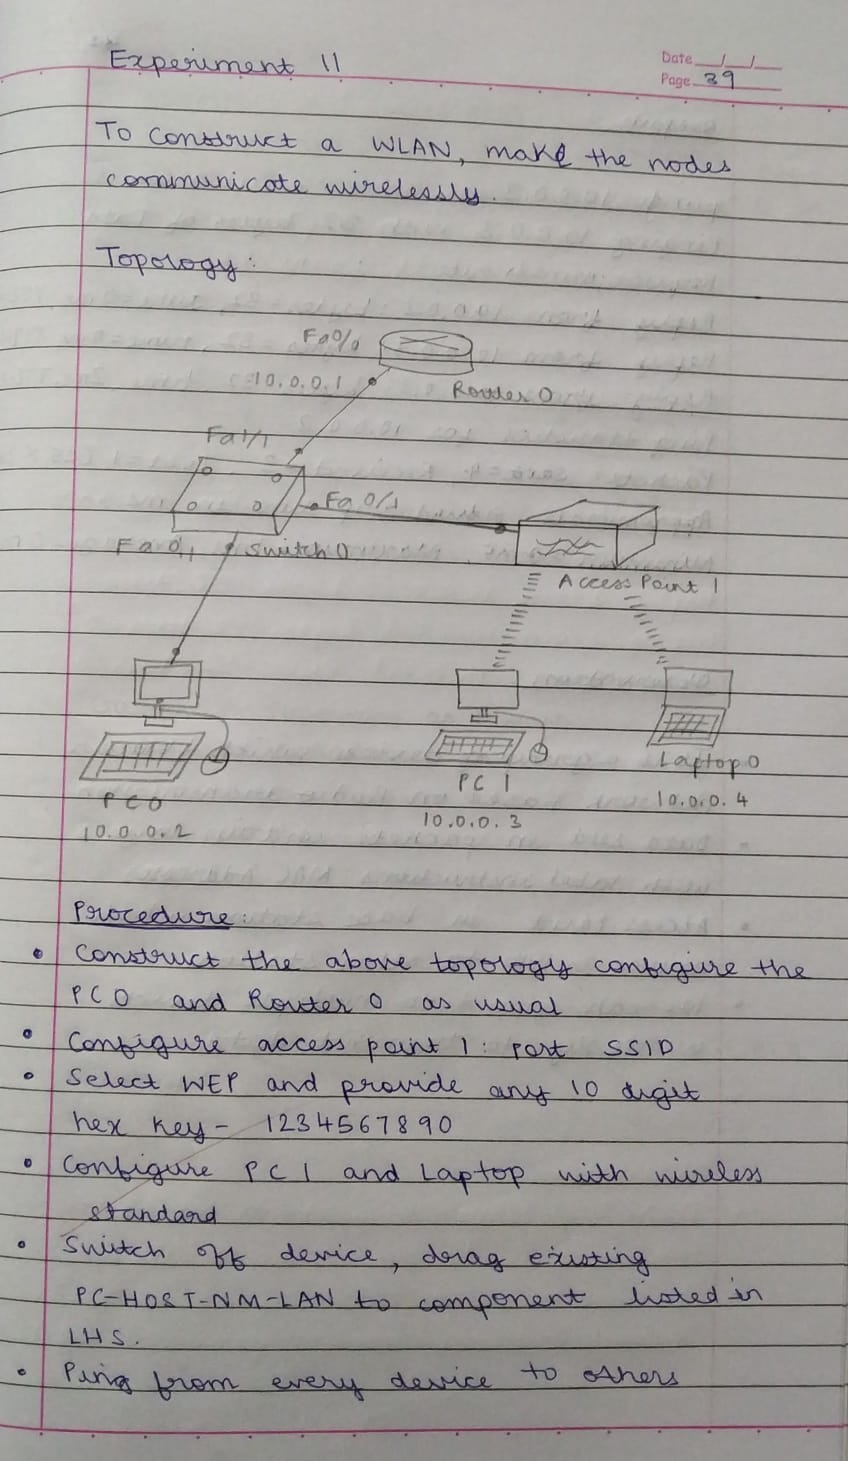 Experiment 11
Date
Page 39
To construct a WLAN, make the nodes
communicate wirelessly.
Topology:
Fa0/0
10.0.0.1
Router 0
Fa1/1
Fa 0/1
Fa 0/1
Switch 0
Access Point 1
PC 0
10.0.0.2
PC 1
10.0.0.3
Laptop 0
10.0.0.4
Procedure:
• Construct the above topology configure the
PC0 and Router 0 as usual
• Configure access point 1: Port SSID
• Select WEP and provide any 10 digit
hex key - 1234567890
• Configure PC 1 and Laptop with wireless
standard
• Switch off device, drag existing
PC-HOST-NM-LAN to component listed in
LHS.
• Ping from every device to others